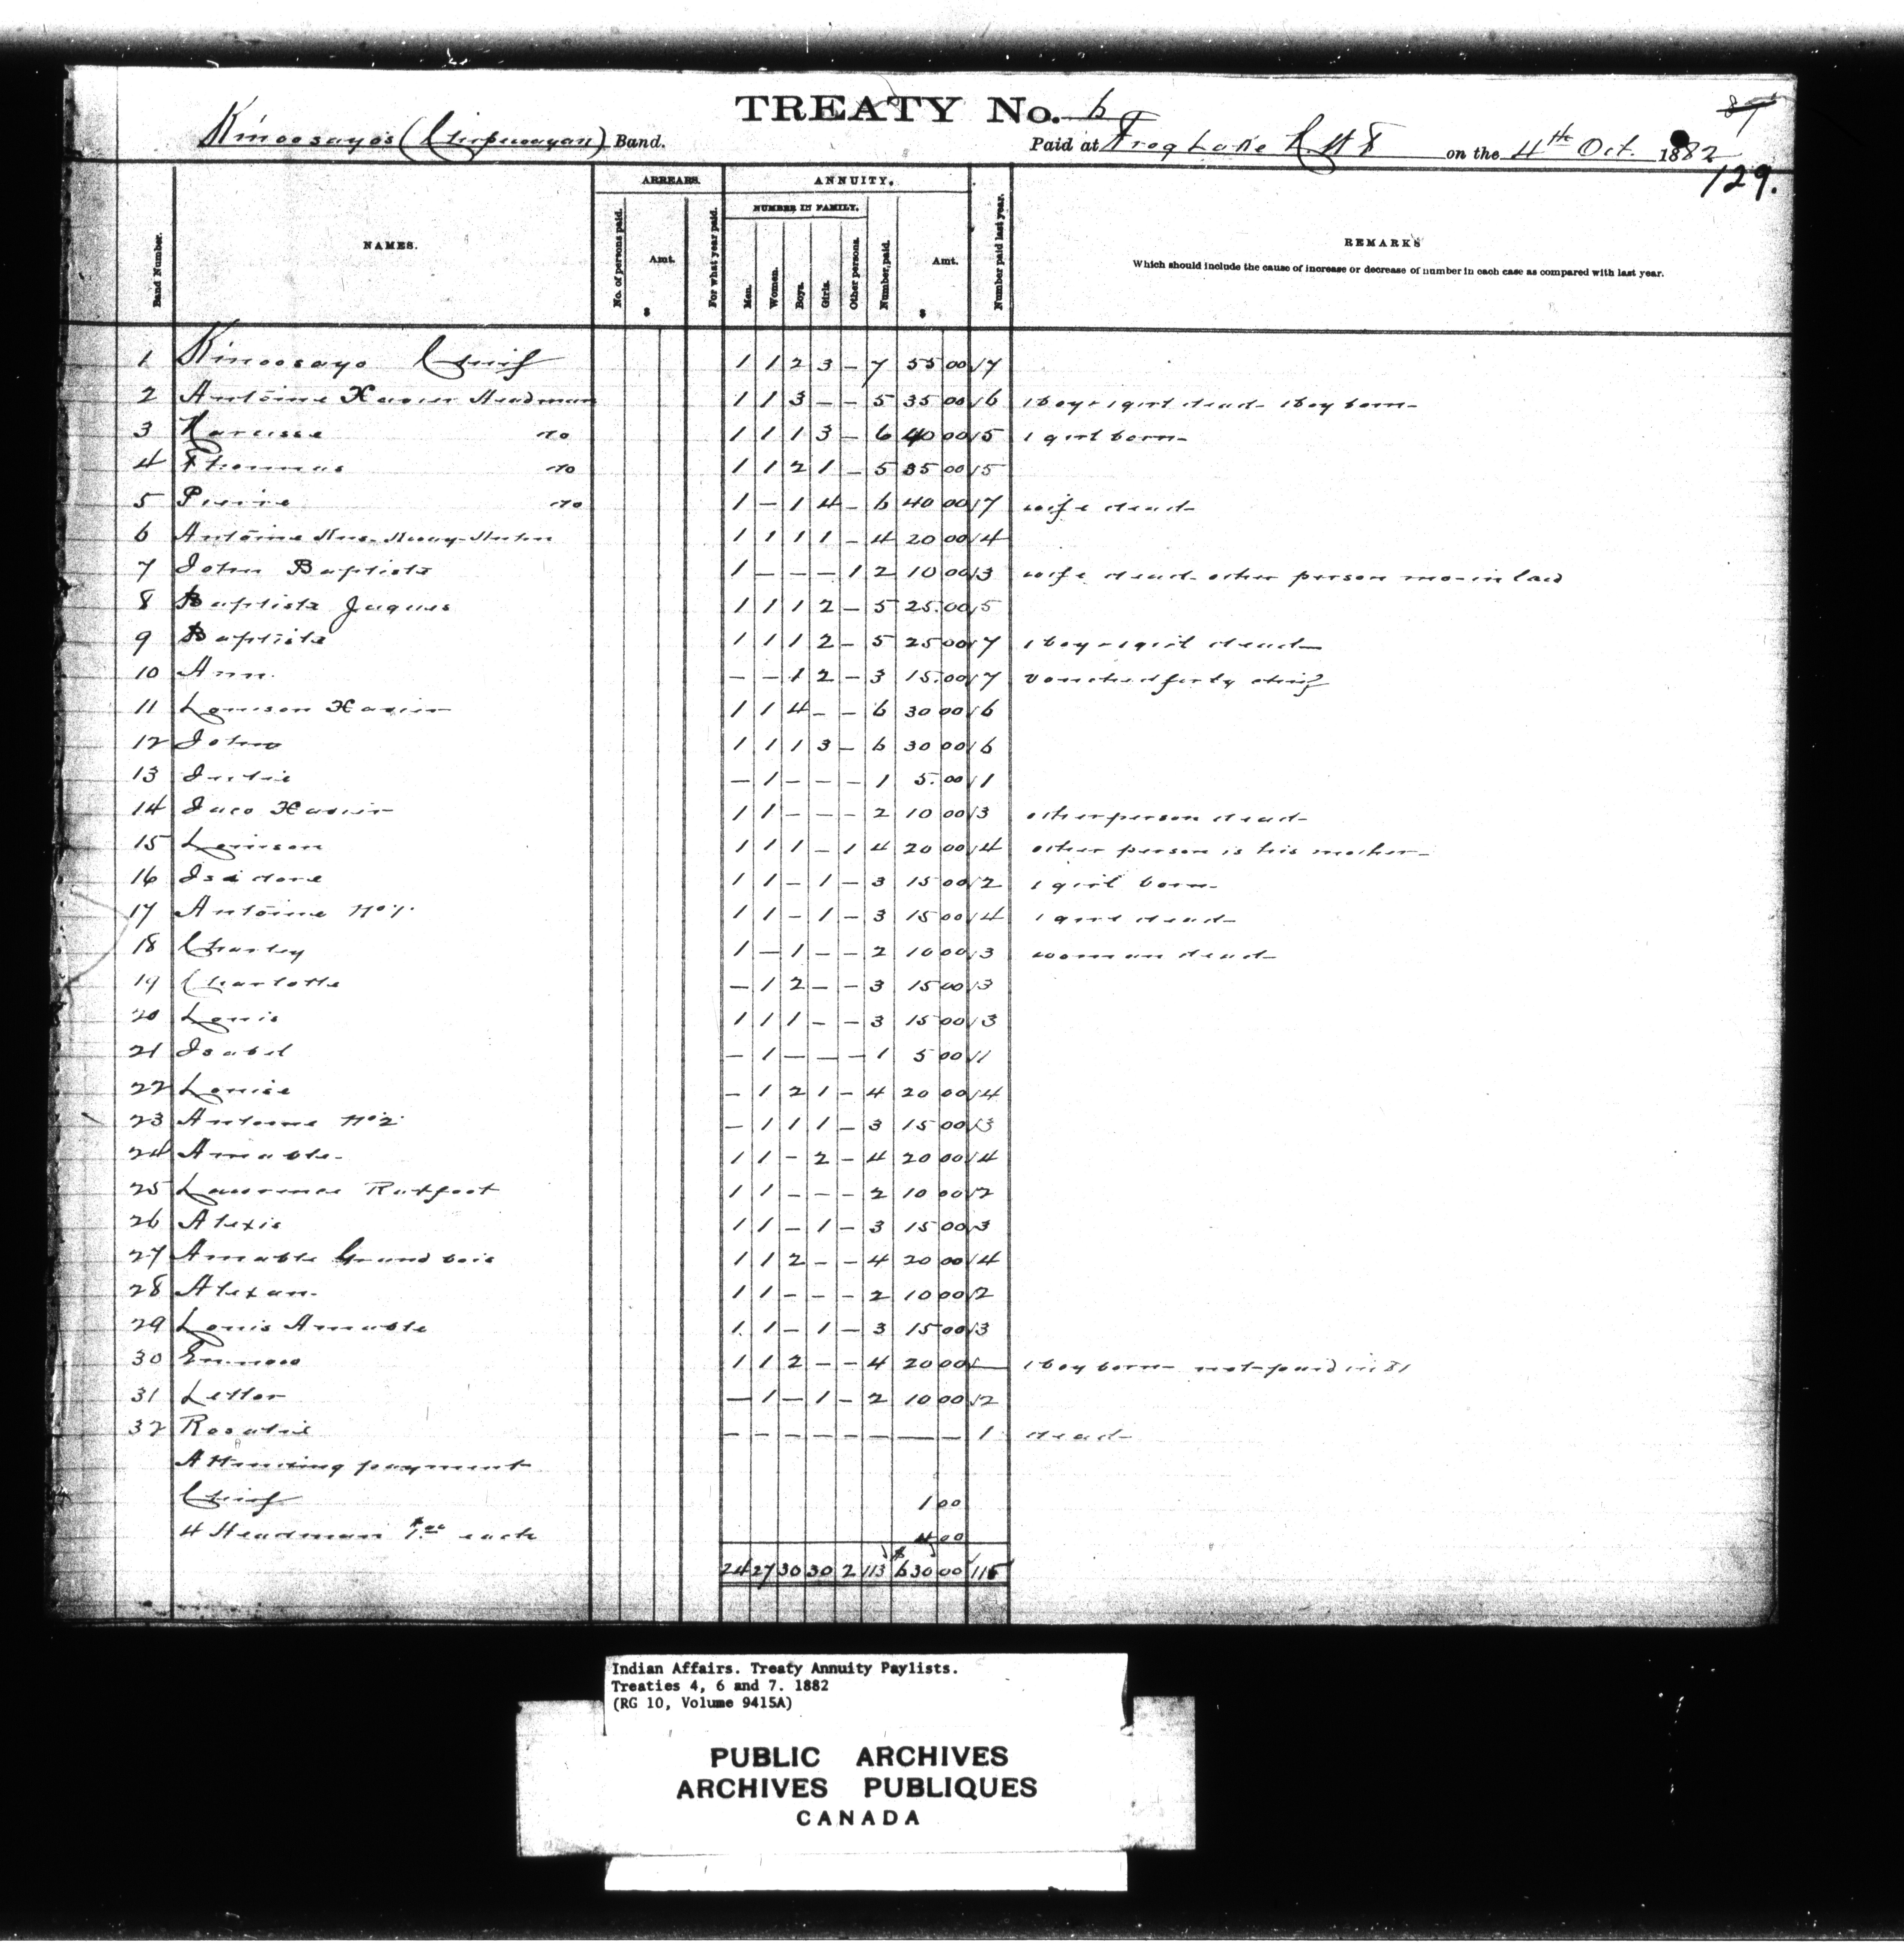 TREATY No. 6
87
Kinoosayo's (Chipwayan) Band. Paid at Frog Lake on the 4th Oct. 1882
129.
Band Number. NAMES. ARREARS. No. of persons paid. Amt. $ For what year paid. ANNUITY. NUMBER IN FAMILY. Men. Women. Boys. Girls. Other persons. Number paid. Amt. $ Number paid last year. REMARKS
Which should include the cause of increase or decrease of number in each case as compared with last year.
1 Kinoosayo Chief 1 1 2 3 – 7 55 00 7
2 Antoine Xavier Headman 1 1 3 – – 5 35 00 6 1 boy & 1 girl dead – 1 boy born –
3 Narcisse do 1 1 1 3 – 6 40 00 5 1 girl born –
4 Thommas do 1 1 2 1 – 5 35 00 5
5 Pierre do 1 – 1 4 – 6 40 00 7 wife dead –
6 Antoine 1 1 1 1 – 4 20 00 4
7 John Baptiste 1 – – – 1 2 10 00 3 wife dead – other person mo-in law
8 Baptiste Jaques 1 1 1 2 – 5 25.00 5
9 Baptiste 1 1 1 2 – 5 25 00 7 1 boy & 1 girl dead –
10 Ann. – – 1 2 – 3 15.00 7 vouched for by chief
11 Louison Xavier 1 1 4 – – 6 30 00 6
12 John 1 1 1 3 – 6 30 00 6
13 Julie – 1 – – – 1 5.00 1
14 Jaco Xavier 1 1 – – – 2 10 00 3 other person dead –
15 Louison 1 1 1 – 1 4 20 00 4 other person is his mother –
16 Isidore 1 1 – 1 – 3 15 00 2 1 girl born –
17 Antoine No 1. 1 1 – 1 – 3 15 00 4 1 girl dead –
18 Charley 1 – 1 – – 2 10 00 3 woman dead –
19 Charlotte – 1 2 – – 3 15 00 3
20 Louis 1 1 1 – – 3 15 00 3
21 Isabel – 1 – – – 1 5 00 1
22 Louise – 1 2 1 – 4 20 00 4
23 Antoine No 2. – 1 1 1 – 3 15 00 3
24 Amable – 1 1 – 2 – 4 20 00 4
25 Lawrence Ratfoot 1 1 – – – 2 10 00 2
26 Alexis 1 1 – 1 – 3 15 00 3
27 Amable Grandbois 1 1 2 – – 4 20 00 4
28 Alexan – 1 1 – – – 2 10 00 2
29 Louis Amable 1 1 – 1 – 3 15 00 3
30 1 1 2 – – 4 20 00 – 1 boy born – not paid in 81
31 Lettor – 1 – 1 – 2 10 00 2
32 Rosalie – – – – – – – 1 dead –
Attending payment
Chief 1 00
4 Headmen $1.00 each 4 00
24 27 30 30 2 113 $630 00 115
Indian Affairs. Treaty Annuity Paylists.
Treaties 4, 6 and 7. 1882
(RG 10, Volume 9415A)
PUBLIC ARCHIVES
ARCHIVES PUBLIQUES
CANADA